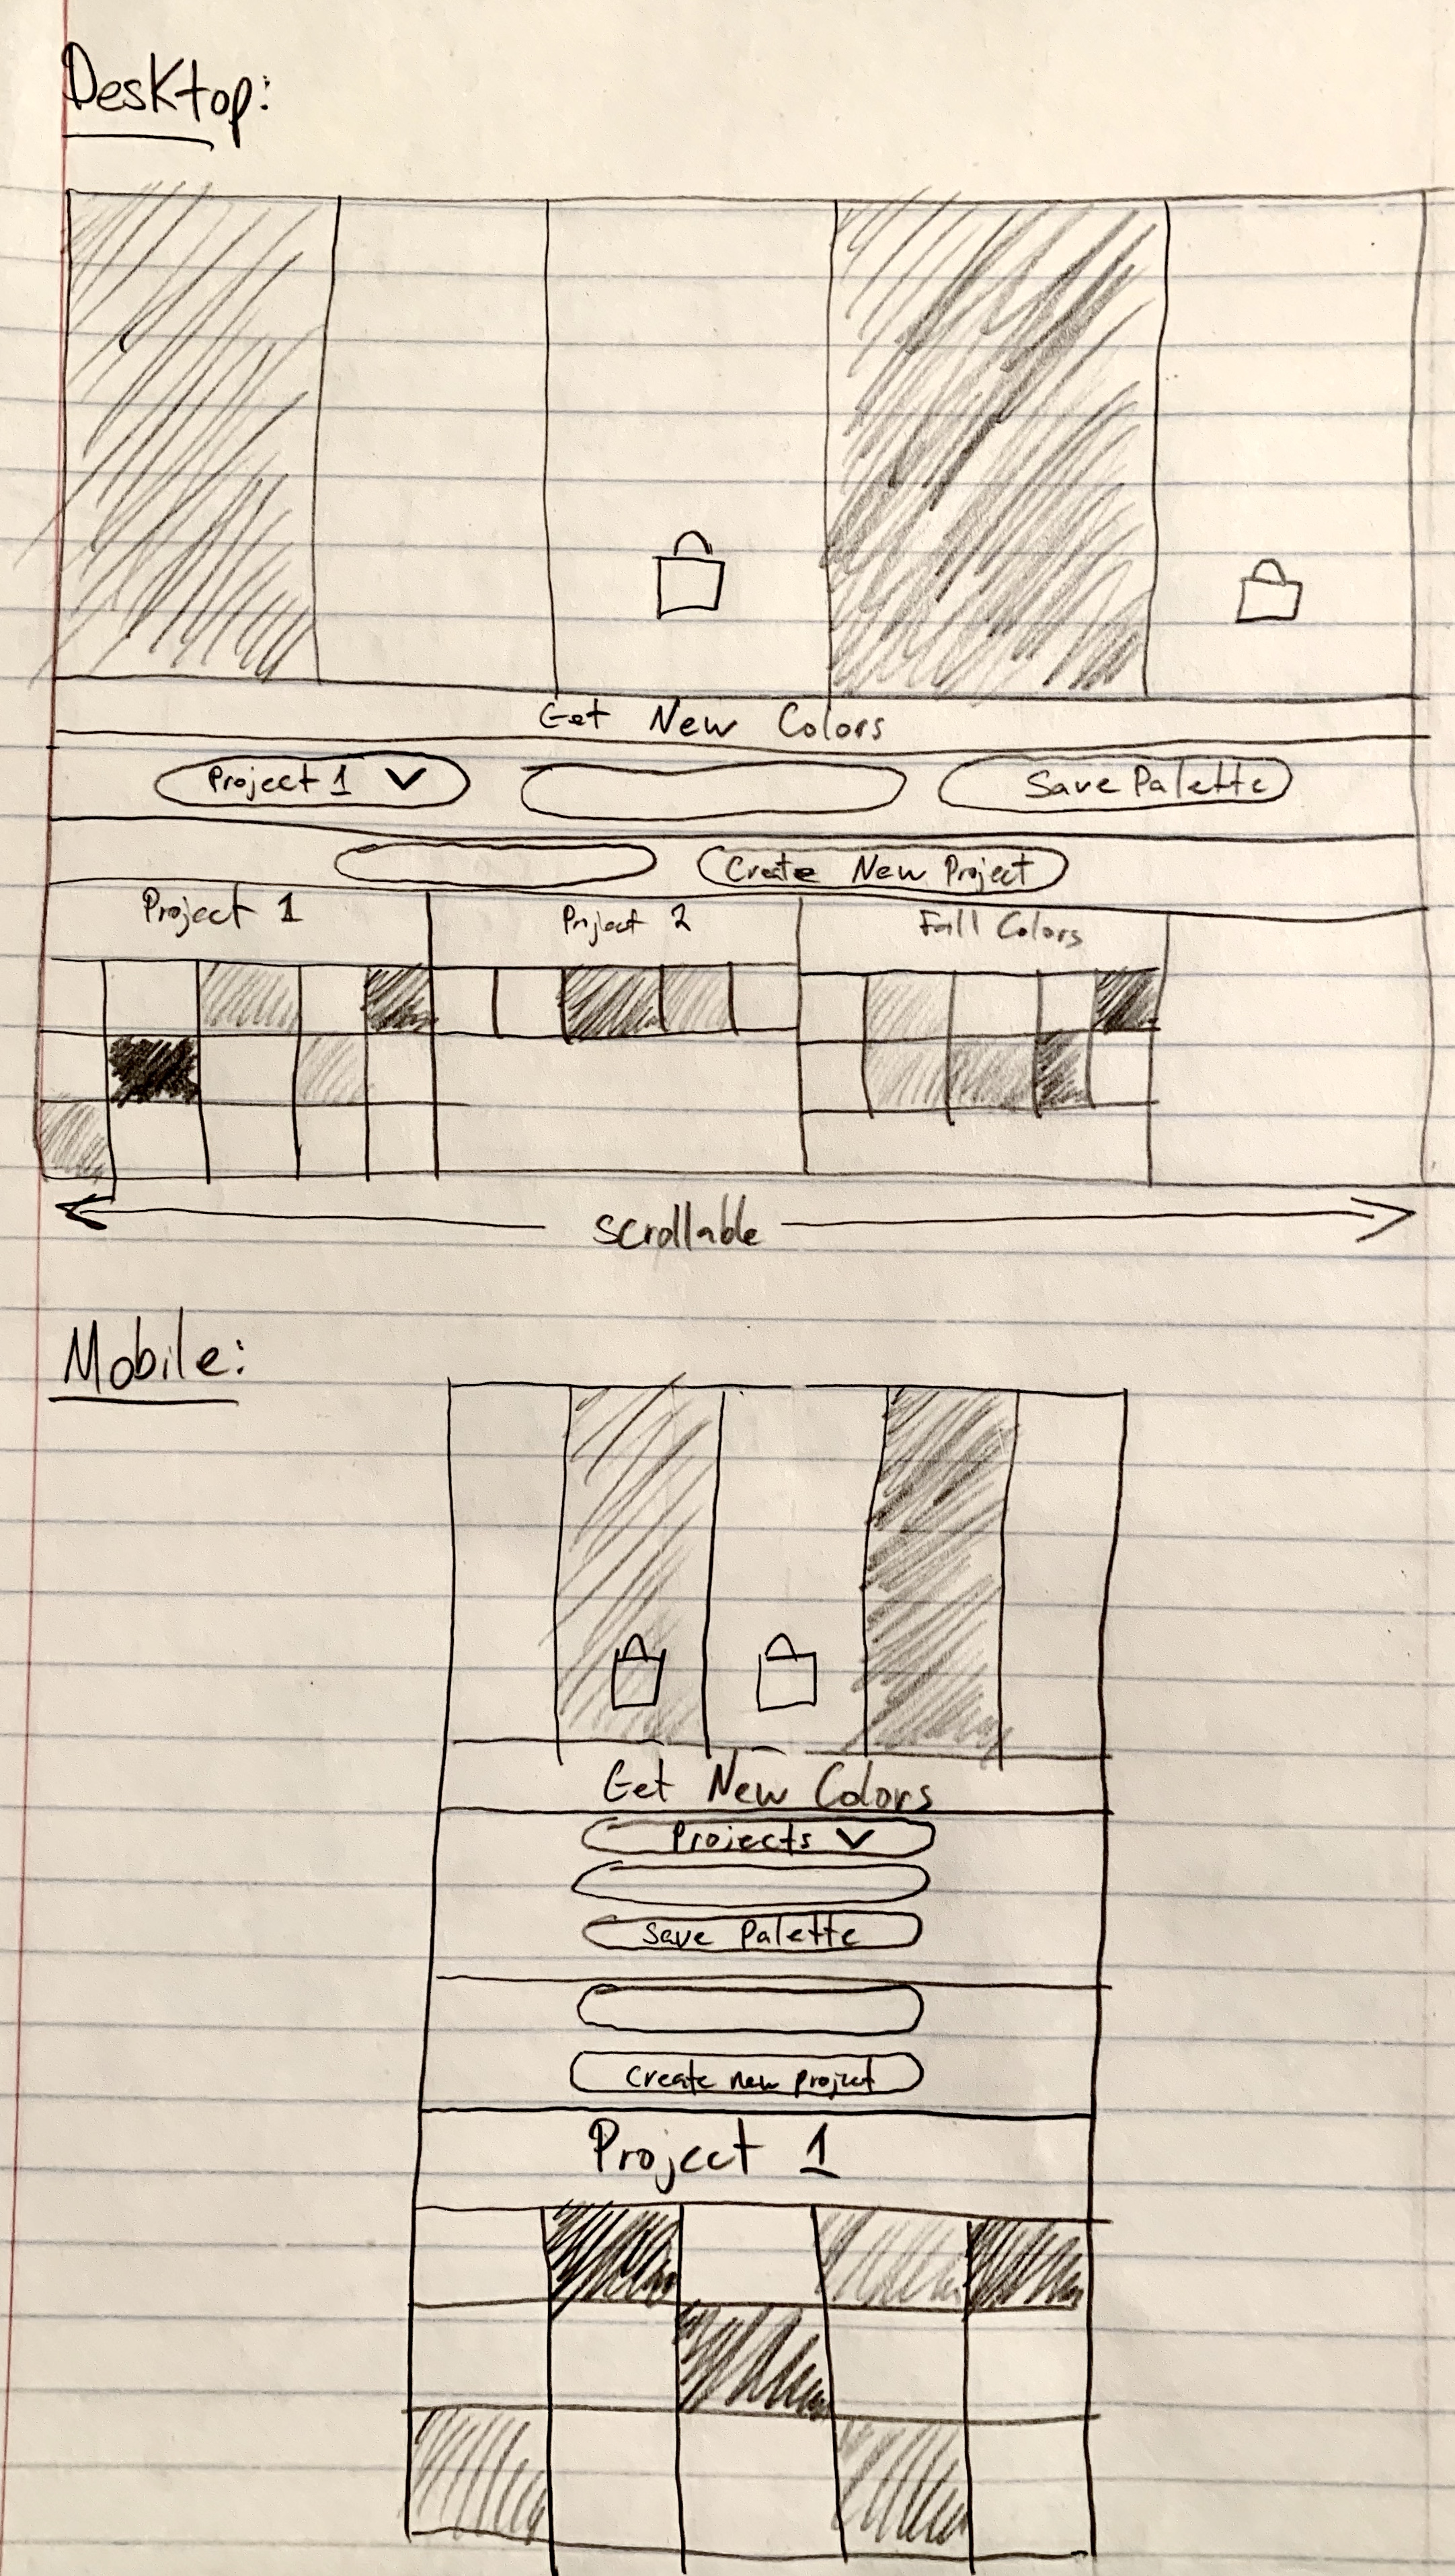 Desktop:
Get New Colors
Project 1 Save Palette
Create New Project
Project 1 Project 2 Fall Colors
scrollable
Mobile:
Get New Colors
Projects
Save Palette
Create new project
Project 1